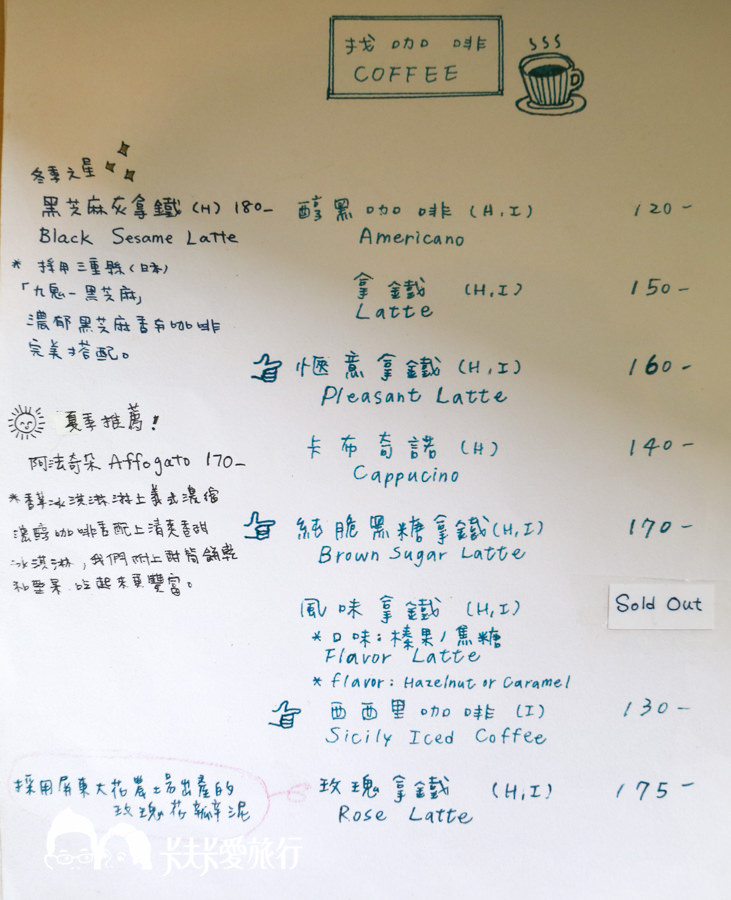 找咖啡
COFFEE
冬季之星
黑芝麻灰拿鐵 (H) 180-
Black Sesame Latte
* 採用三重縣(日本)
「九鬼-黑芝麻」
濃郁黑芝麻香與咖啡
完美搭配。
夏季推薦!
阿法奇朵 Affogato 170-
*香草冰淇淋淋上義式濃縮
濃醇咖啡香配上清爽香草
冰淇淋,我們附上酥脆鋪乾
和堅果,吃起來更豐富。
醇黑咖啡 (H,I) 120-
Americano
拿鐵 (H,I) 150-
Latte
愜意拿鐵 (H,I) 160-
Pleasant Latte
卡布奇諾 (H) 140-
Cappucino
純脆黑糖拿鐵(H,I) 170-
Brown Sugar Latte
風味拿鐵 (H,I) Sold Out
*口味:榛果/焦糖
Flavor Latte
* flavor: Hazelnut or Caramel
西西里咖啡 (I) 130-
Sicily Iced Coffee
玫瑰拿鐵 (H,I) 175-
Rose Latte
採用屏東大花農場出產的
玫瑰花瓣泥
卡夫卡愛旅行